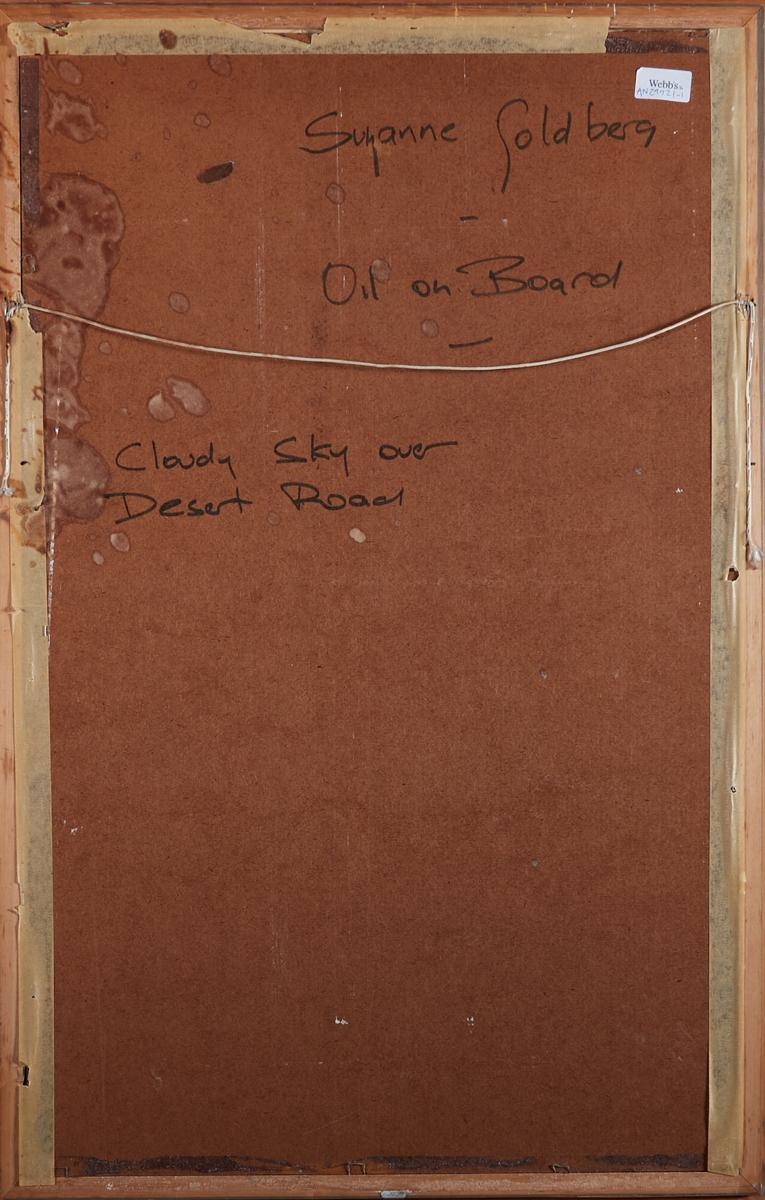 Webb's
Suzanne Goldberg
-
Oil on Board
-
Cloudy Sky over
Desert Road